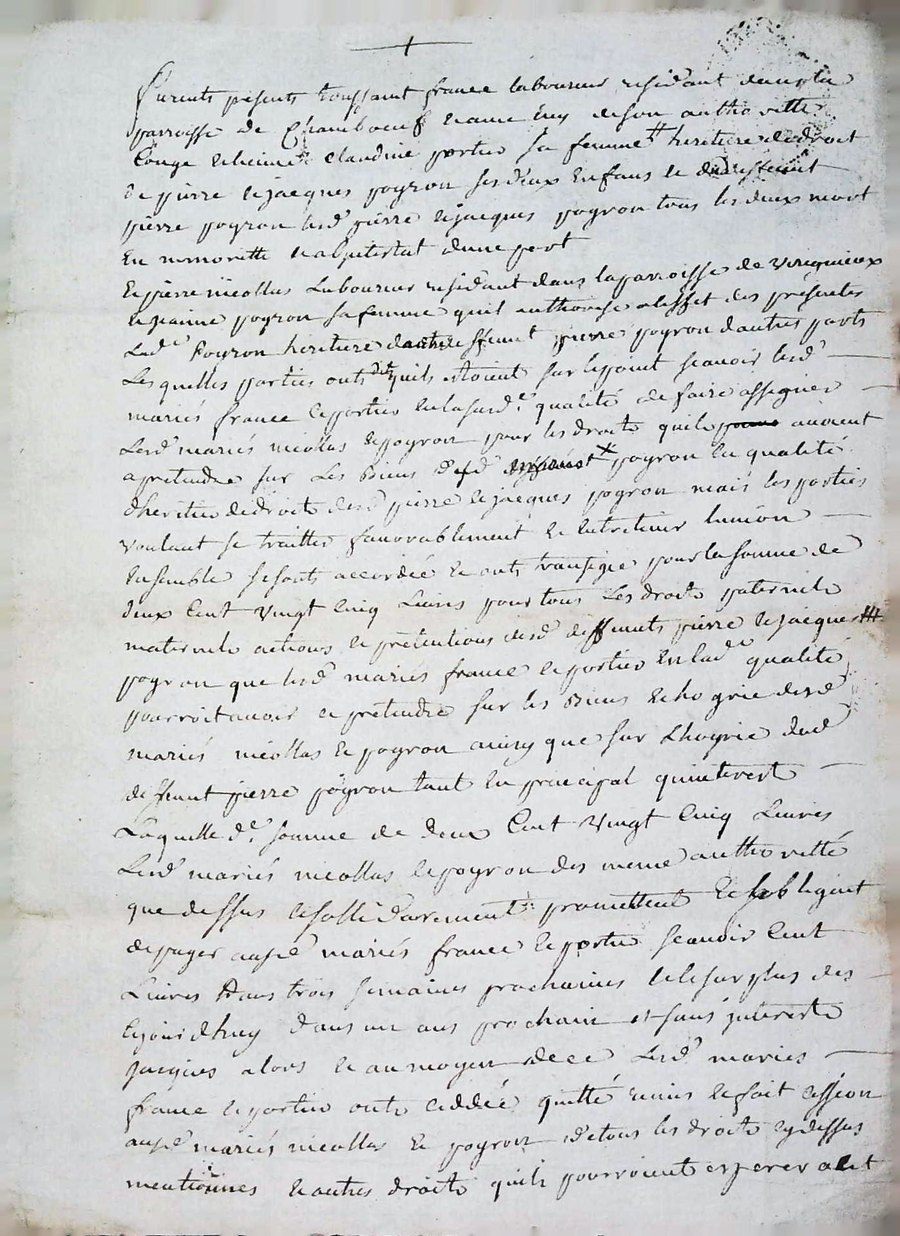 furents présents toussaint france laboureur résidant dans la
parroisse de Chambœuf et avec luy de son authoritté
Conge et licince Claudine portier sa femme heritiere de droit
de pierre et jacques poyron ses deux Enfans et de deffunt
pierre poyron lesd pierre et jacques poyron tous les deux mort
En minoritte et abintestat dune part
Et pierre nicollas Laboureur résidant dans la parroisse de
et jeanne poyron sa femme quil authorise a leffet des présentes
Lade Poyron heritiere deffunt pierre poyron dautres parts
Lesquelles parties onts dit quils étoient sur le point scavoir lesd
mariés france et portier en la susde qualité de faire assigner
Lesd mariés nicollas et poyron pour les droits quils avoient
a prétendre sur Les Biens dud poyron En qualité
dheritier de droit desd pierre et jacques poyron mais les parties
voulant se traitter favorablement et Entretenir lunion
Ensemble se sonts accordée et onts transigée pour la somme de
deux Cent vingt Cinq Livres pour tous Les droits paternels
maternels actions et prétentions desd deffunts pierre et jacques
poyron que lesd mariés france et portier En lade qualité
pourroit avoir et prétendre sur les Biens et hoyrie desd
mariés nicollas et poyron ainsy que sur Lhoyrie dud
deffunt pierre poyron tant En principal quinterest
Laquelle de somme de deux Cent vingt Cinq Livres
Lesd mariés nicollas et poyron des meme authoritté
que dessus et sollidairement promettent et sobligent
de payer auxd mariés france et portier scavoir Cent
Livres dans trois semaines prochaines et le surplus des
Cejourdhuy dans un ans prochain et sans interests
jusques alors et au moyen de ce Lesd mariés
france et portier onts céddée quitté remis et fait cession
auxd mariés nicollas et poyron de tous les droits cy dessus
mentionnes et autres droits quils pourroient esperer a et